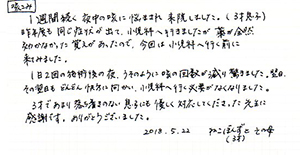 咳こみ
1週間続く夜中の咳に悩まされ来院しました。(3才息子)
昨年度も同じ症状が出て、小児科へ行きましたが薬が全然
効かなかった覚えがあったので、今回は小児科へ行く前に
来てみました。
1日2回の施術後の夜、うそのように咳の回数が減り驚きました。翌日、
その翌日もどんどん快方に向かい、小児科へ行く必要がなくなりました。
3才であまり落ち着きのない息子にも優しく対応してくださった先生に
感謝です。ありがとうございました。
2018.5.22 とその母
(3才)